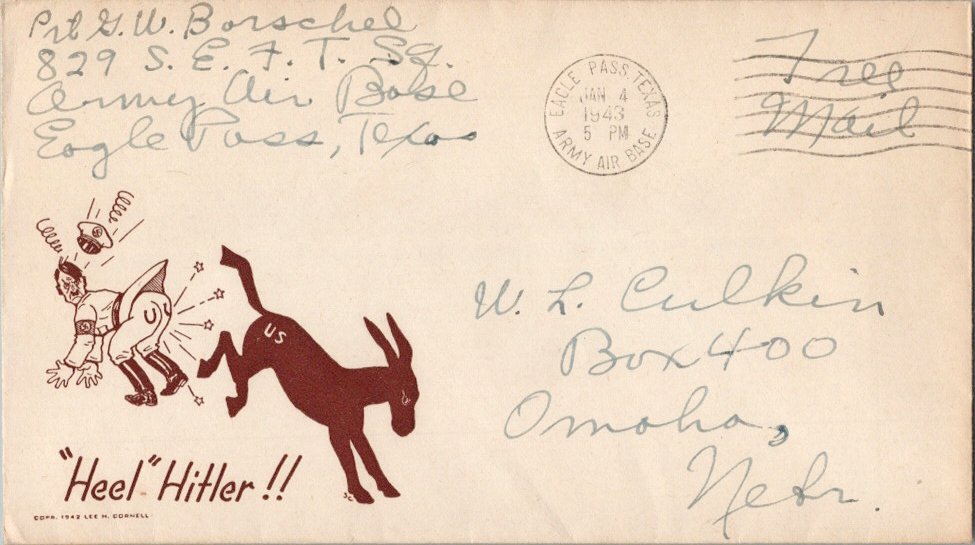 Pvt G. W. Borschel
829 S. E. F. T. Sq.
Army Air Base
Eagle Pass, Texas
EAGLE PASS, TEXAS
JAN 4
1943
5 PM
ARMY AIR BASE
Free
Mail
US
W. L. Culkin
Box 400
Omaha,
Nebr.
"Heel" Hitler!!
COPR. 1942 LEE H. CORNELL